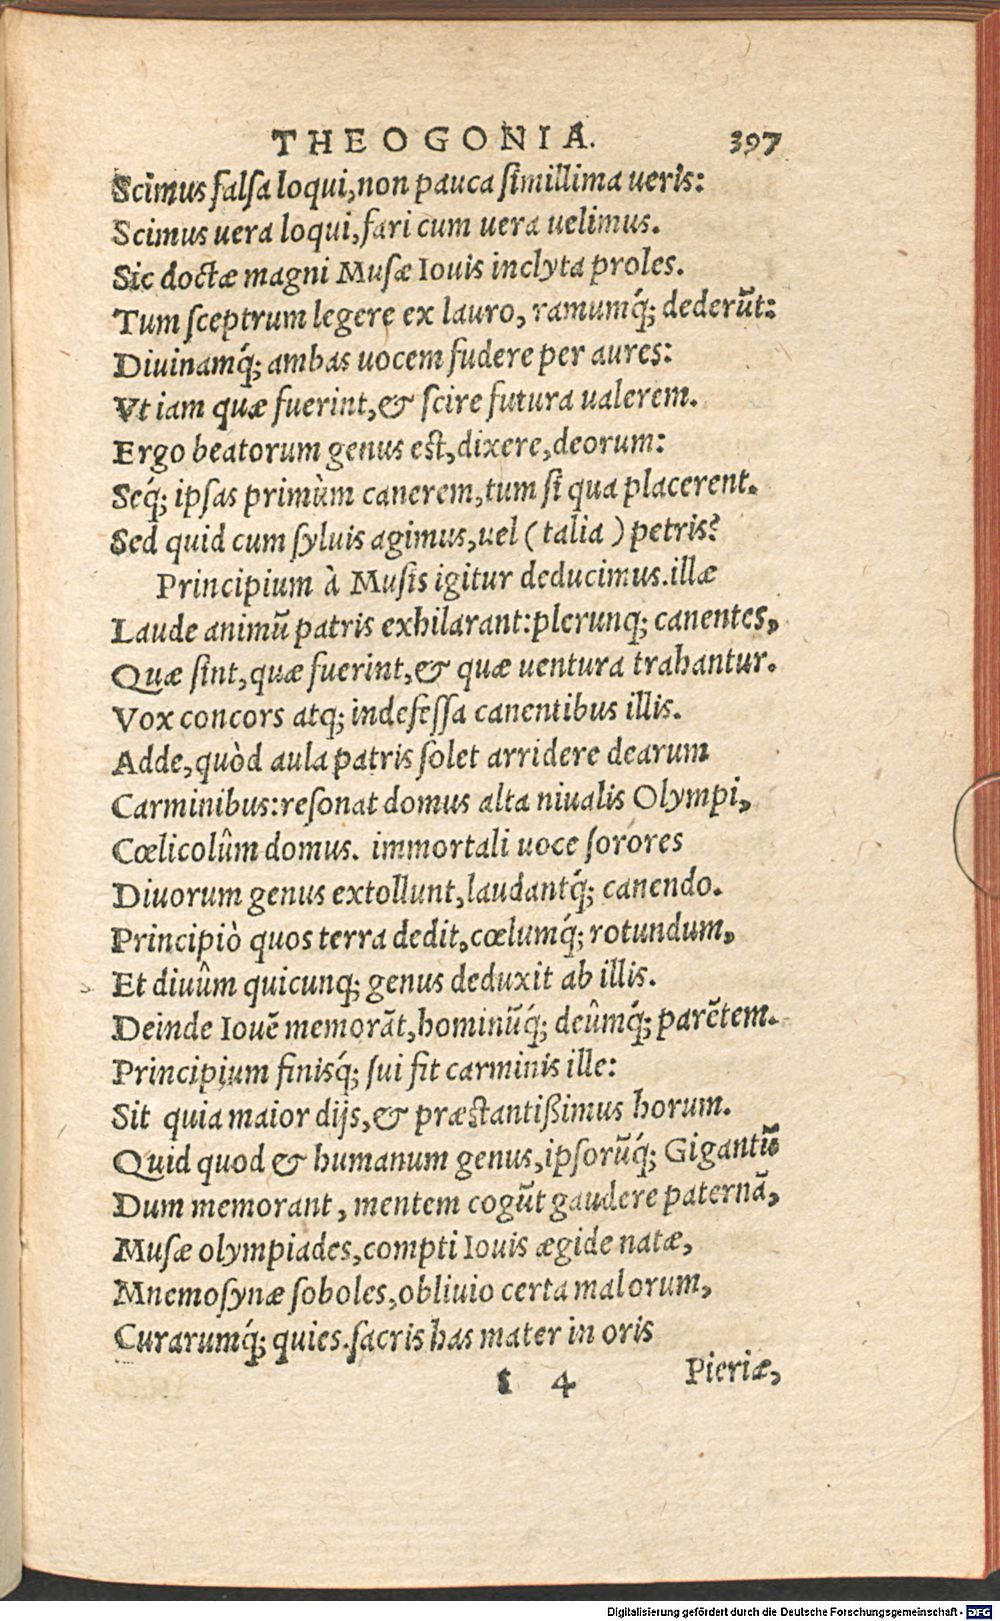 THEOGONIA. 397
Scimus falsa loqui, non pauca simillima ueris:
Scimus uera loqui, fari cum uera uelimus.
Sic doctæ magni Musæ Iouis inclyta proles.
Tum sceptrum legere ex lauro, ramumq́; dederũt:
Diuinamq́; ambas uocem fudere per aures:
Vt iam quæ fuerint, & scire futura ualerem.
Ergo beatorum genus est, dixere, deorum:
Seq́; ipsas primùm canerem, tum si qua placerent.
Sed quid cum syluis agimus, uel (talia) petris?
Principium à Musis igitur deducimus. illæ
Laude animũ patris exhilarant: plerunq; canentes,
Quæ sint, quæ fuerint, & quæ uentura trahantur.
Vox concors atq; indefessa canentibus illis.
Adde, quòd aula patris solet arridere dearum
Carminibus: resonat domus alta niualis Olympi,
Cœlicolûm domus. immortali uoce sorores
Diuorum genus extollunt, laudantq́; canendo.
Principiò quos terra dedit, cœlumq́; rotundum,
Et diuûm quicunq; genus deduxit ab illis.
Deinde Iouẽ memorãt, hominũq́; deûmq́; parẽtem.
Principium finisq́; sui fit carminis ille:
Sit quia maior dijs, & præstantißimus horum.
Quid quod & humanum genus, ipsorũq́; Gigantũ
Dum memorant, mentem cogũt gaudere paternã,
Musæ olympiades, compti Iouis ægide natæ,
Mnemosynæ soboles, obliuio certa malorum,
Curarumq́; quies. sacris has mater in oris
s 4 Pieriæ,
Digitalisierung gefördert durch die Deutsche Forschungsgemeinschaft - DFG